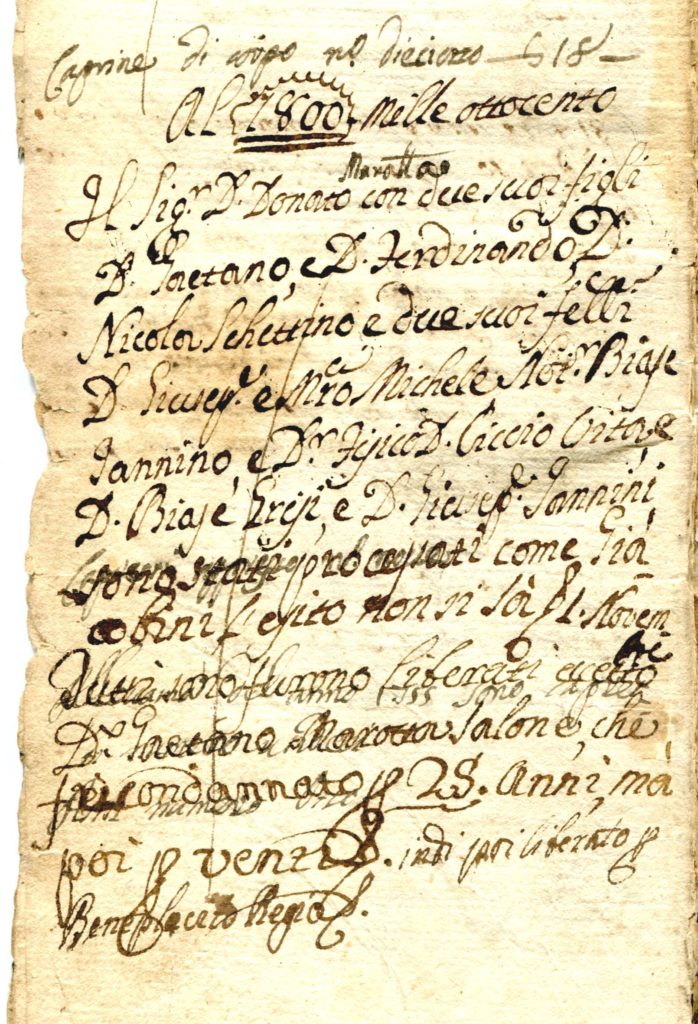 Caprine di corpo no dieciotto — 18 —
Al 1800 Mille ottocento
Marotta
Il Sigr. D. Donato con due suoi figli
D. Gaetano, e D. Ferdinando, D.
Nicola Schettino e due suoi felli
D. Giusepe. e Mro Michele Notr. Biase
Iannino, e Dr. Fisico D. Ciccio Crita, e
D. Biase, e D. Giusepe. Iannini
sono stati processati come Gia
cobini l'esito non si sà 1. Novem
bre
furono liberati eccetto
Dn. Gaetano Marotta Salone, che
fu condannato p 25. Anni, mà
poi p venti. indi poi liberato p
Beneplacito Regio.